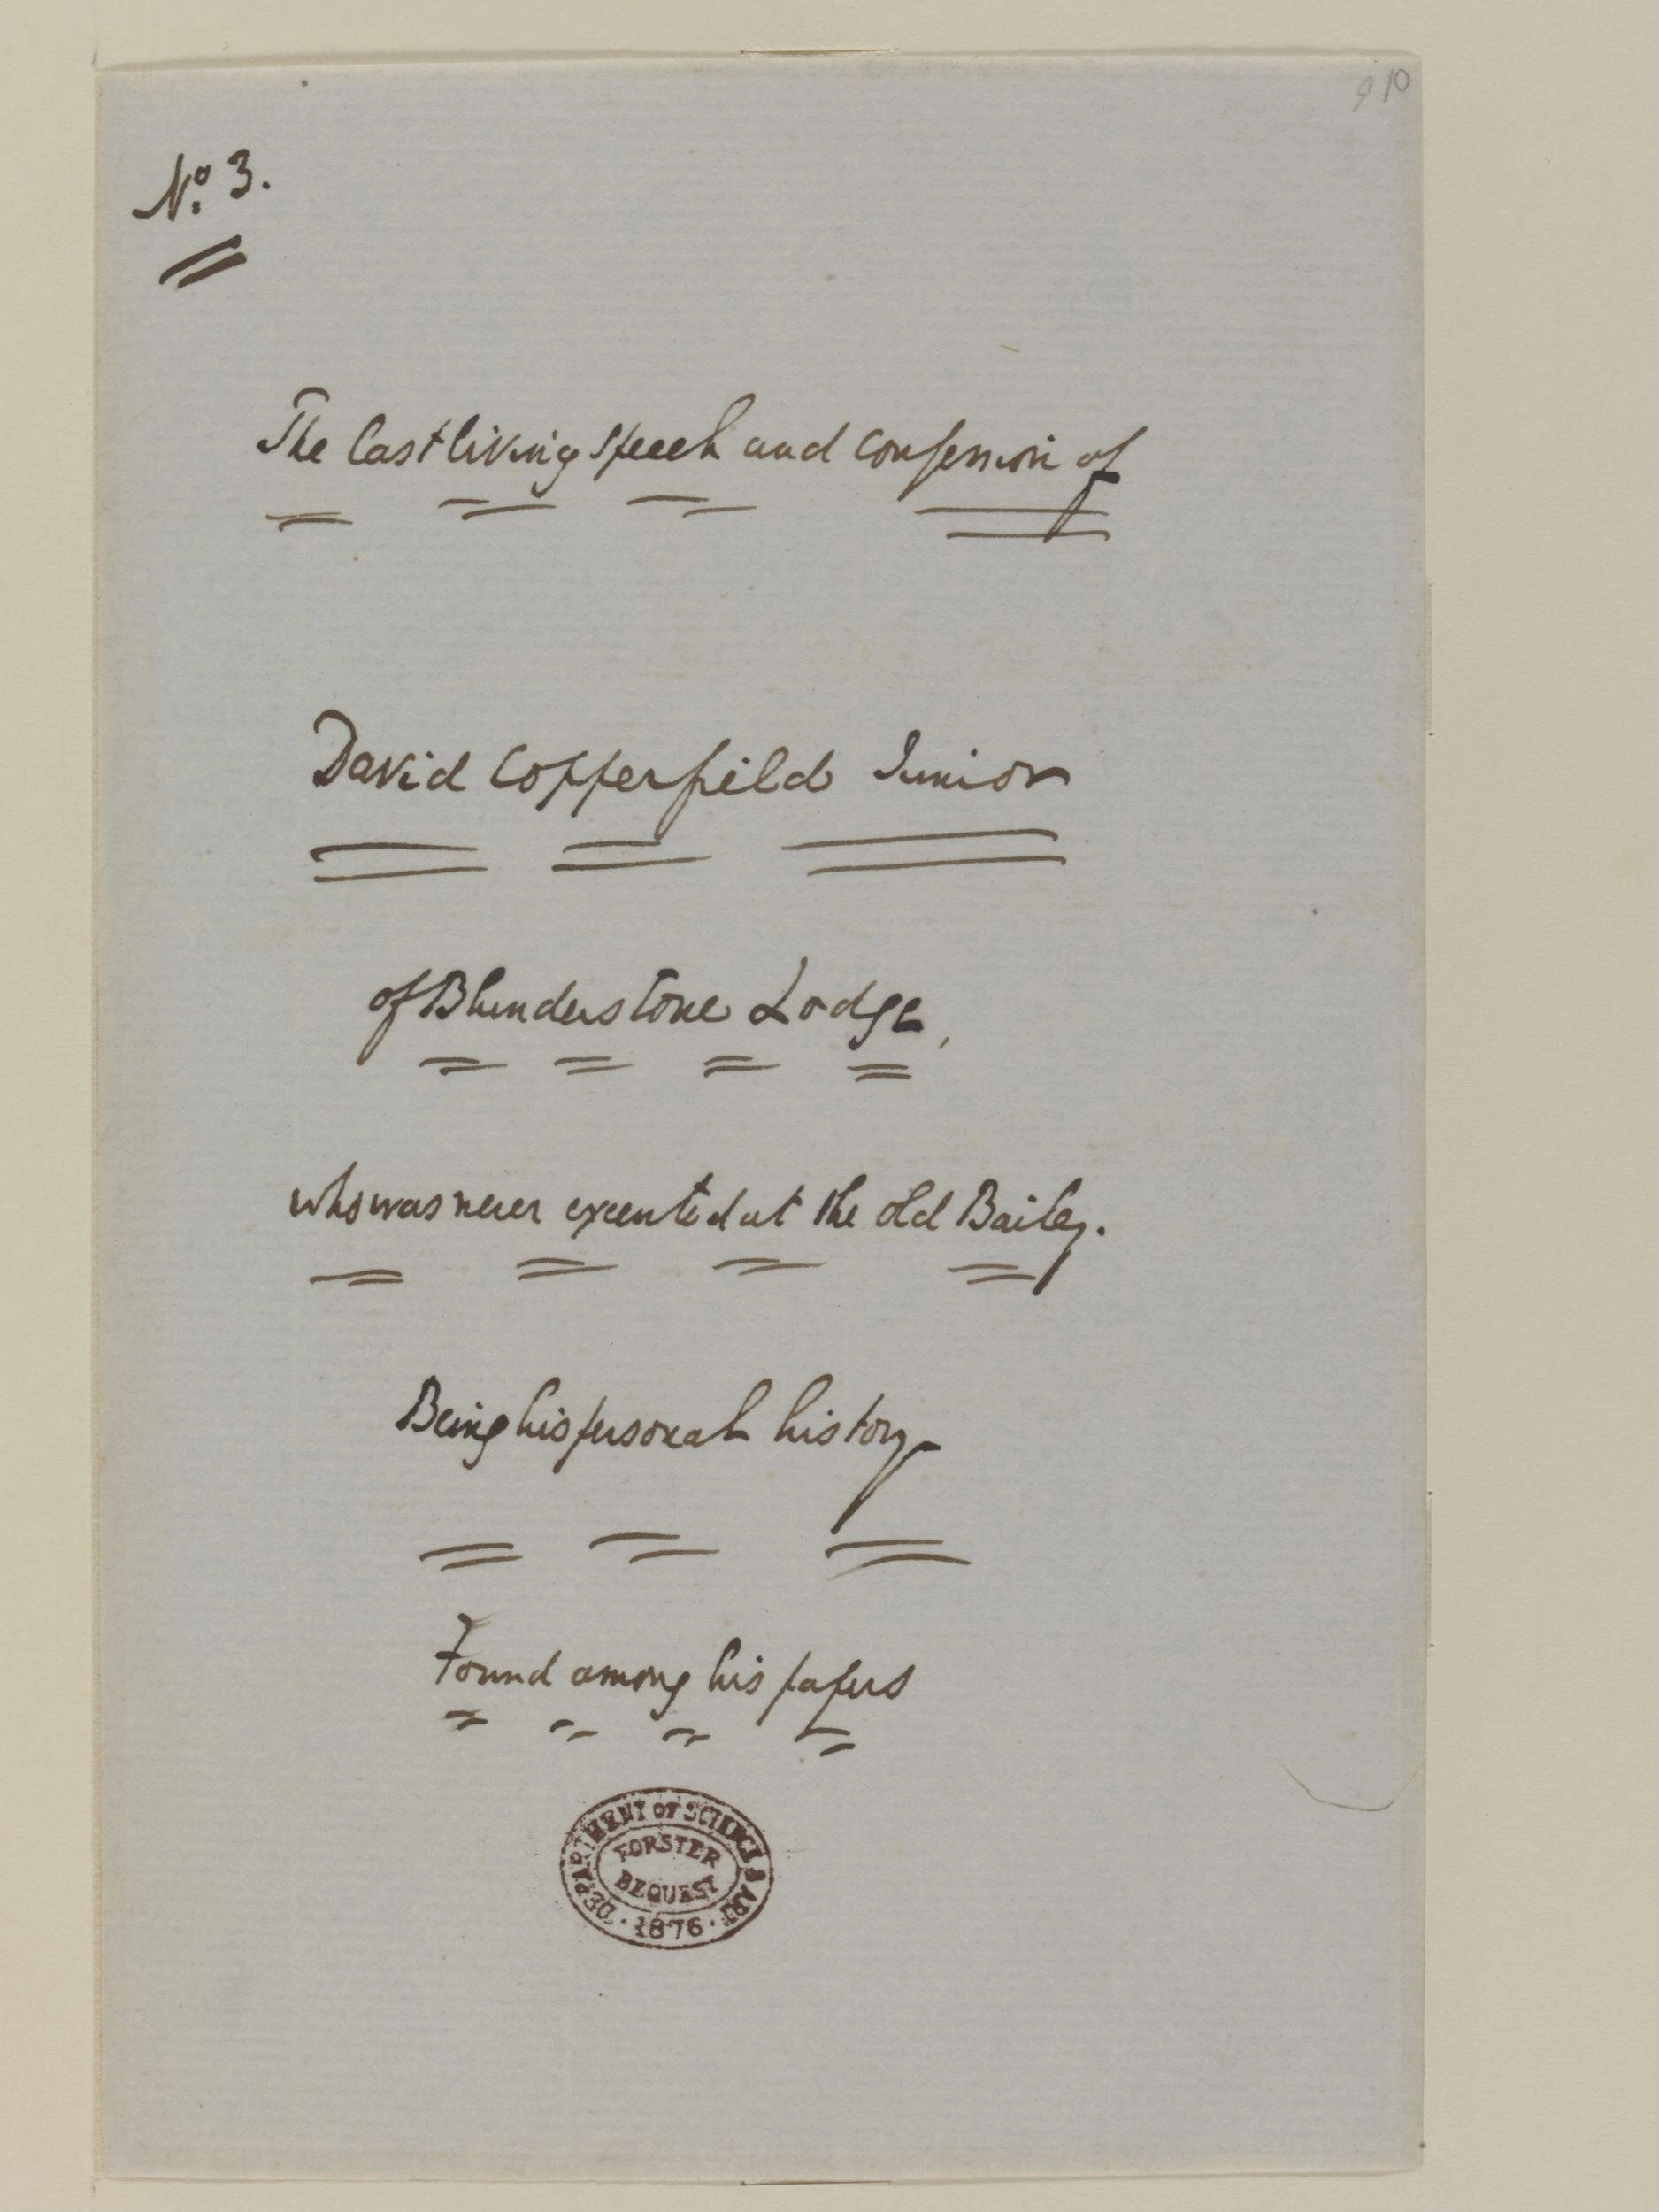 9 10
Nº 3.
The last living speech and confession of
David Copperfield Junior
of Blunderstone Lodge,
who was never executed at the old Bailey.
Being his personal history
Found among his papers
DEPARTMENT OF SCIENCE & ART
FORSTER
BEQUEST
1876